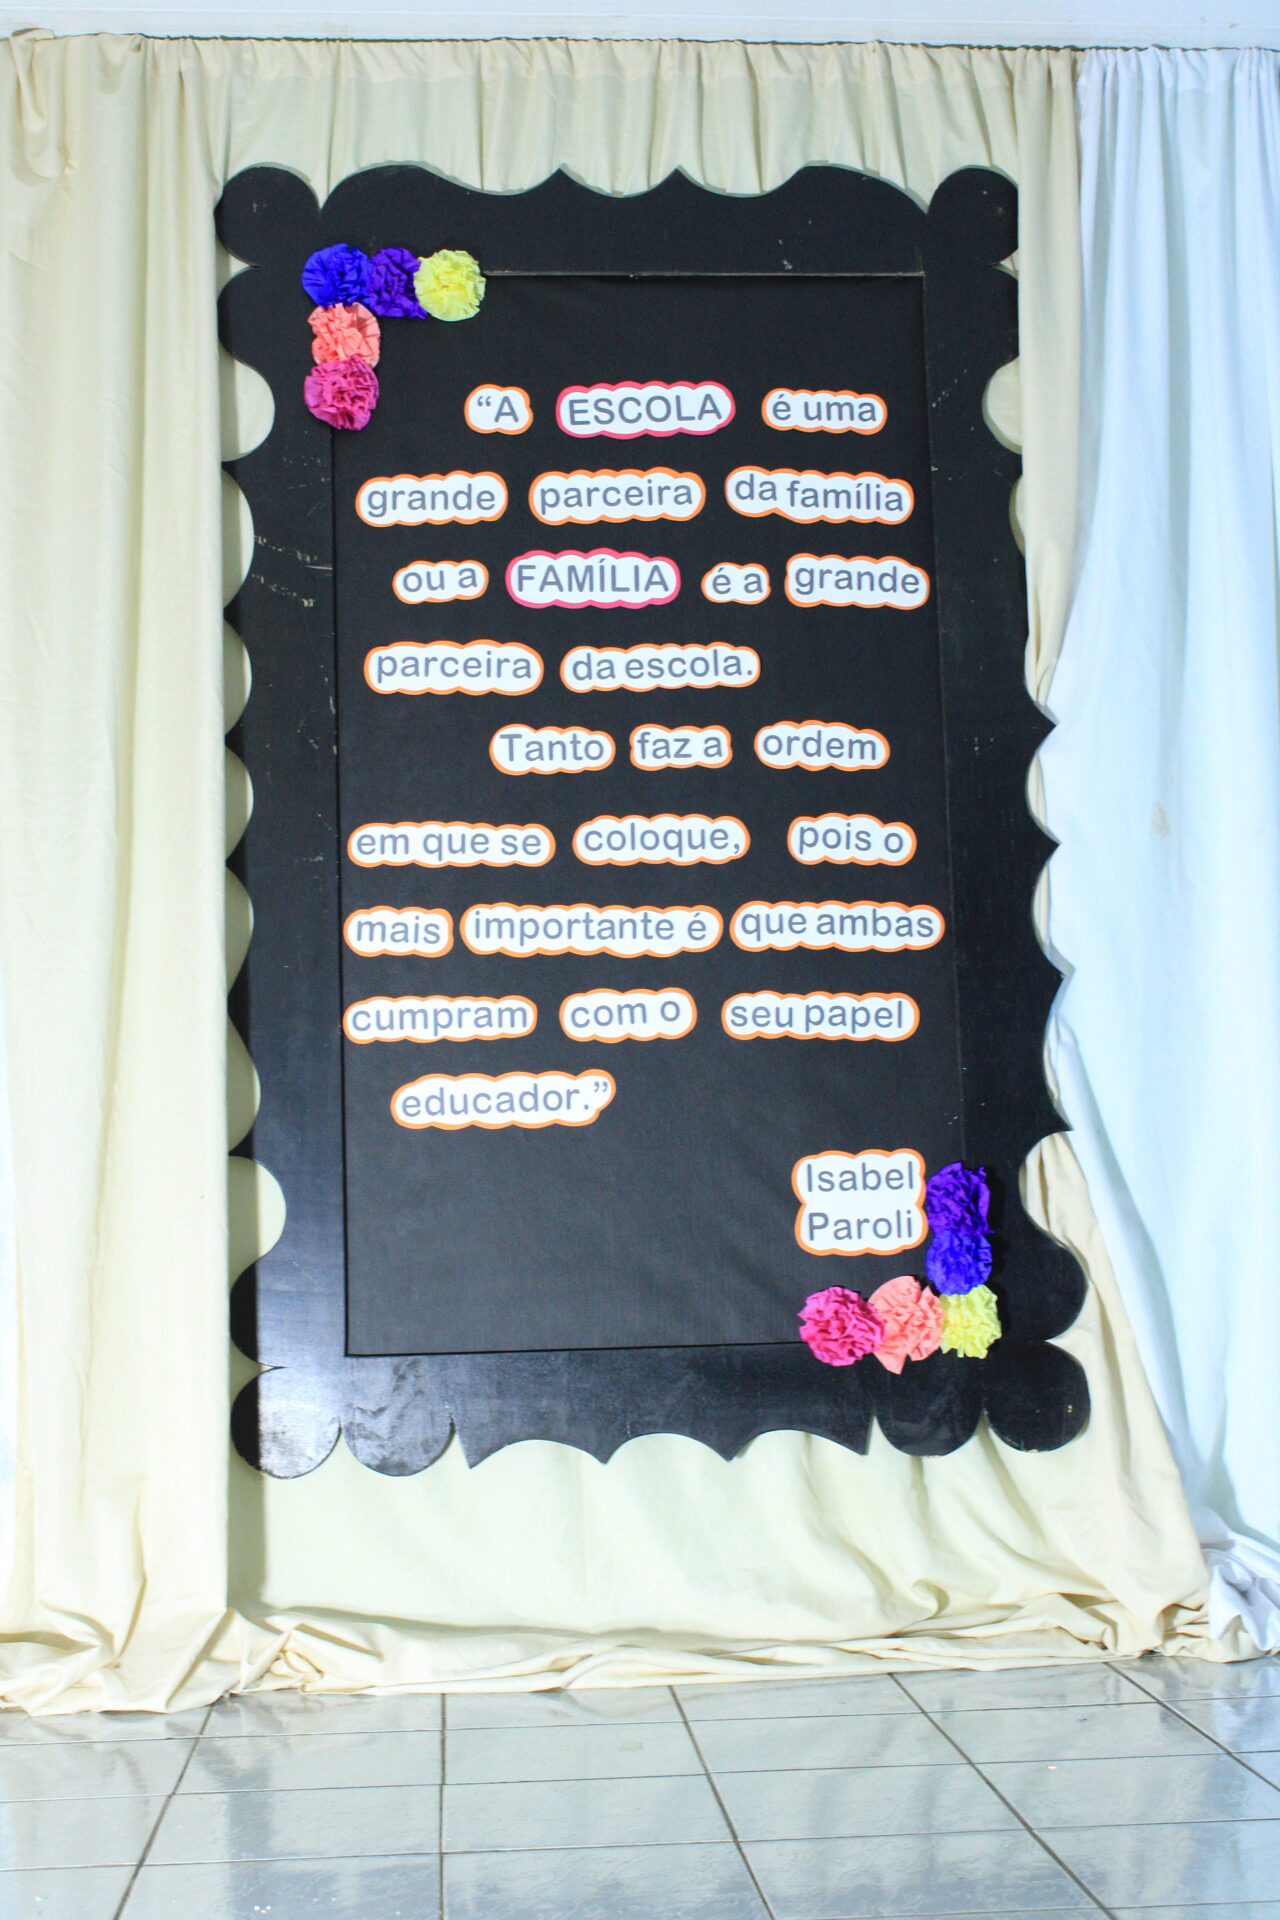 “A ESCOLA é uma
grande parceira da família
ou a FAMÍLIA é a grande
parceira da escola.
Tanto faz a ordem
em que se coloque, pois o
mais importante é que ambas
cumpram com o seu papel
educador.”
Isabel
Paroli